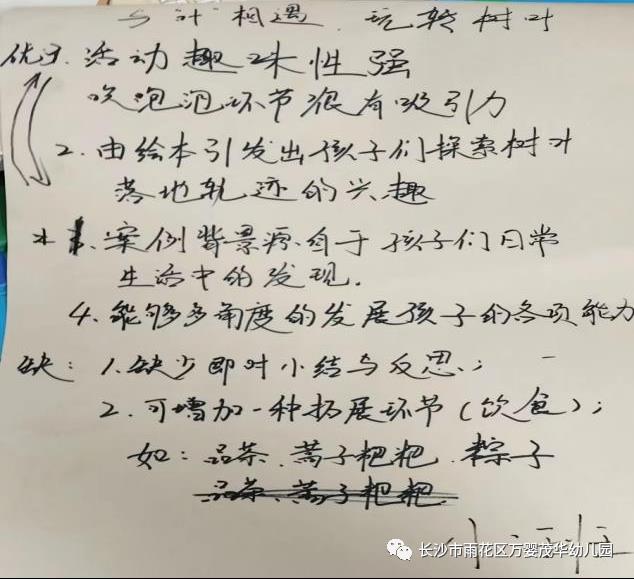 与叶相遇.玩转树叶
优: 1. 活动趣味性强
吹泡泡环节很有吸引力
2. 由绘本引发出孩子们探索树叶
落地轨迹的兴趣
案例背景源自于孩子们日常
生活中的发现.
4. 能够多角度的发展孩子的各项能力
缺: 1. 缺少即时小结与反思;
2. 可增加一种拓展环节(饮食);
如: 品茶、蒿子粑粑、粽子
品茶、蒿子粑粑
长沙市雨花区万婴茂华幼儿园